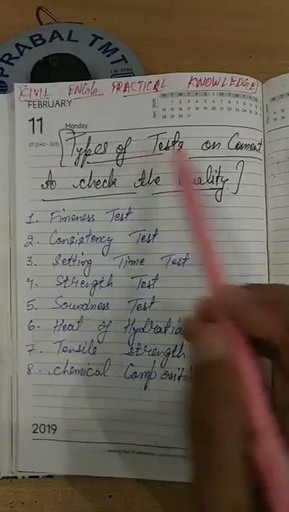 PRABAL TMT
CIVIL ENGG PRACTICAL KNOWLEDGE
FEBRUARY
11
Monday
[Types of Tests on Cement
to check the Quality]
1. Fineness Test
2. Consistency Test
3. Setting Time Test
4. Strength Test
5. Soundness Test
6. Heat of Hydratio
7. Tensile Strength
8. chemical Composit
2019